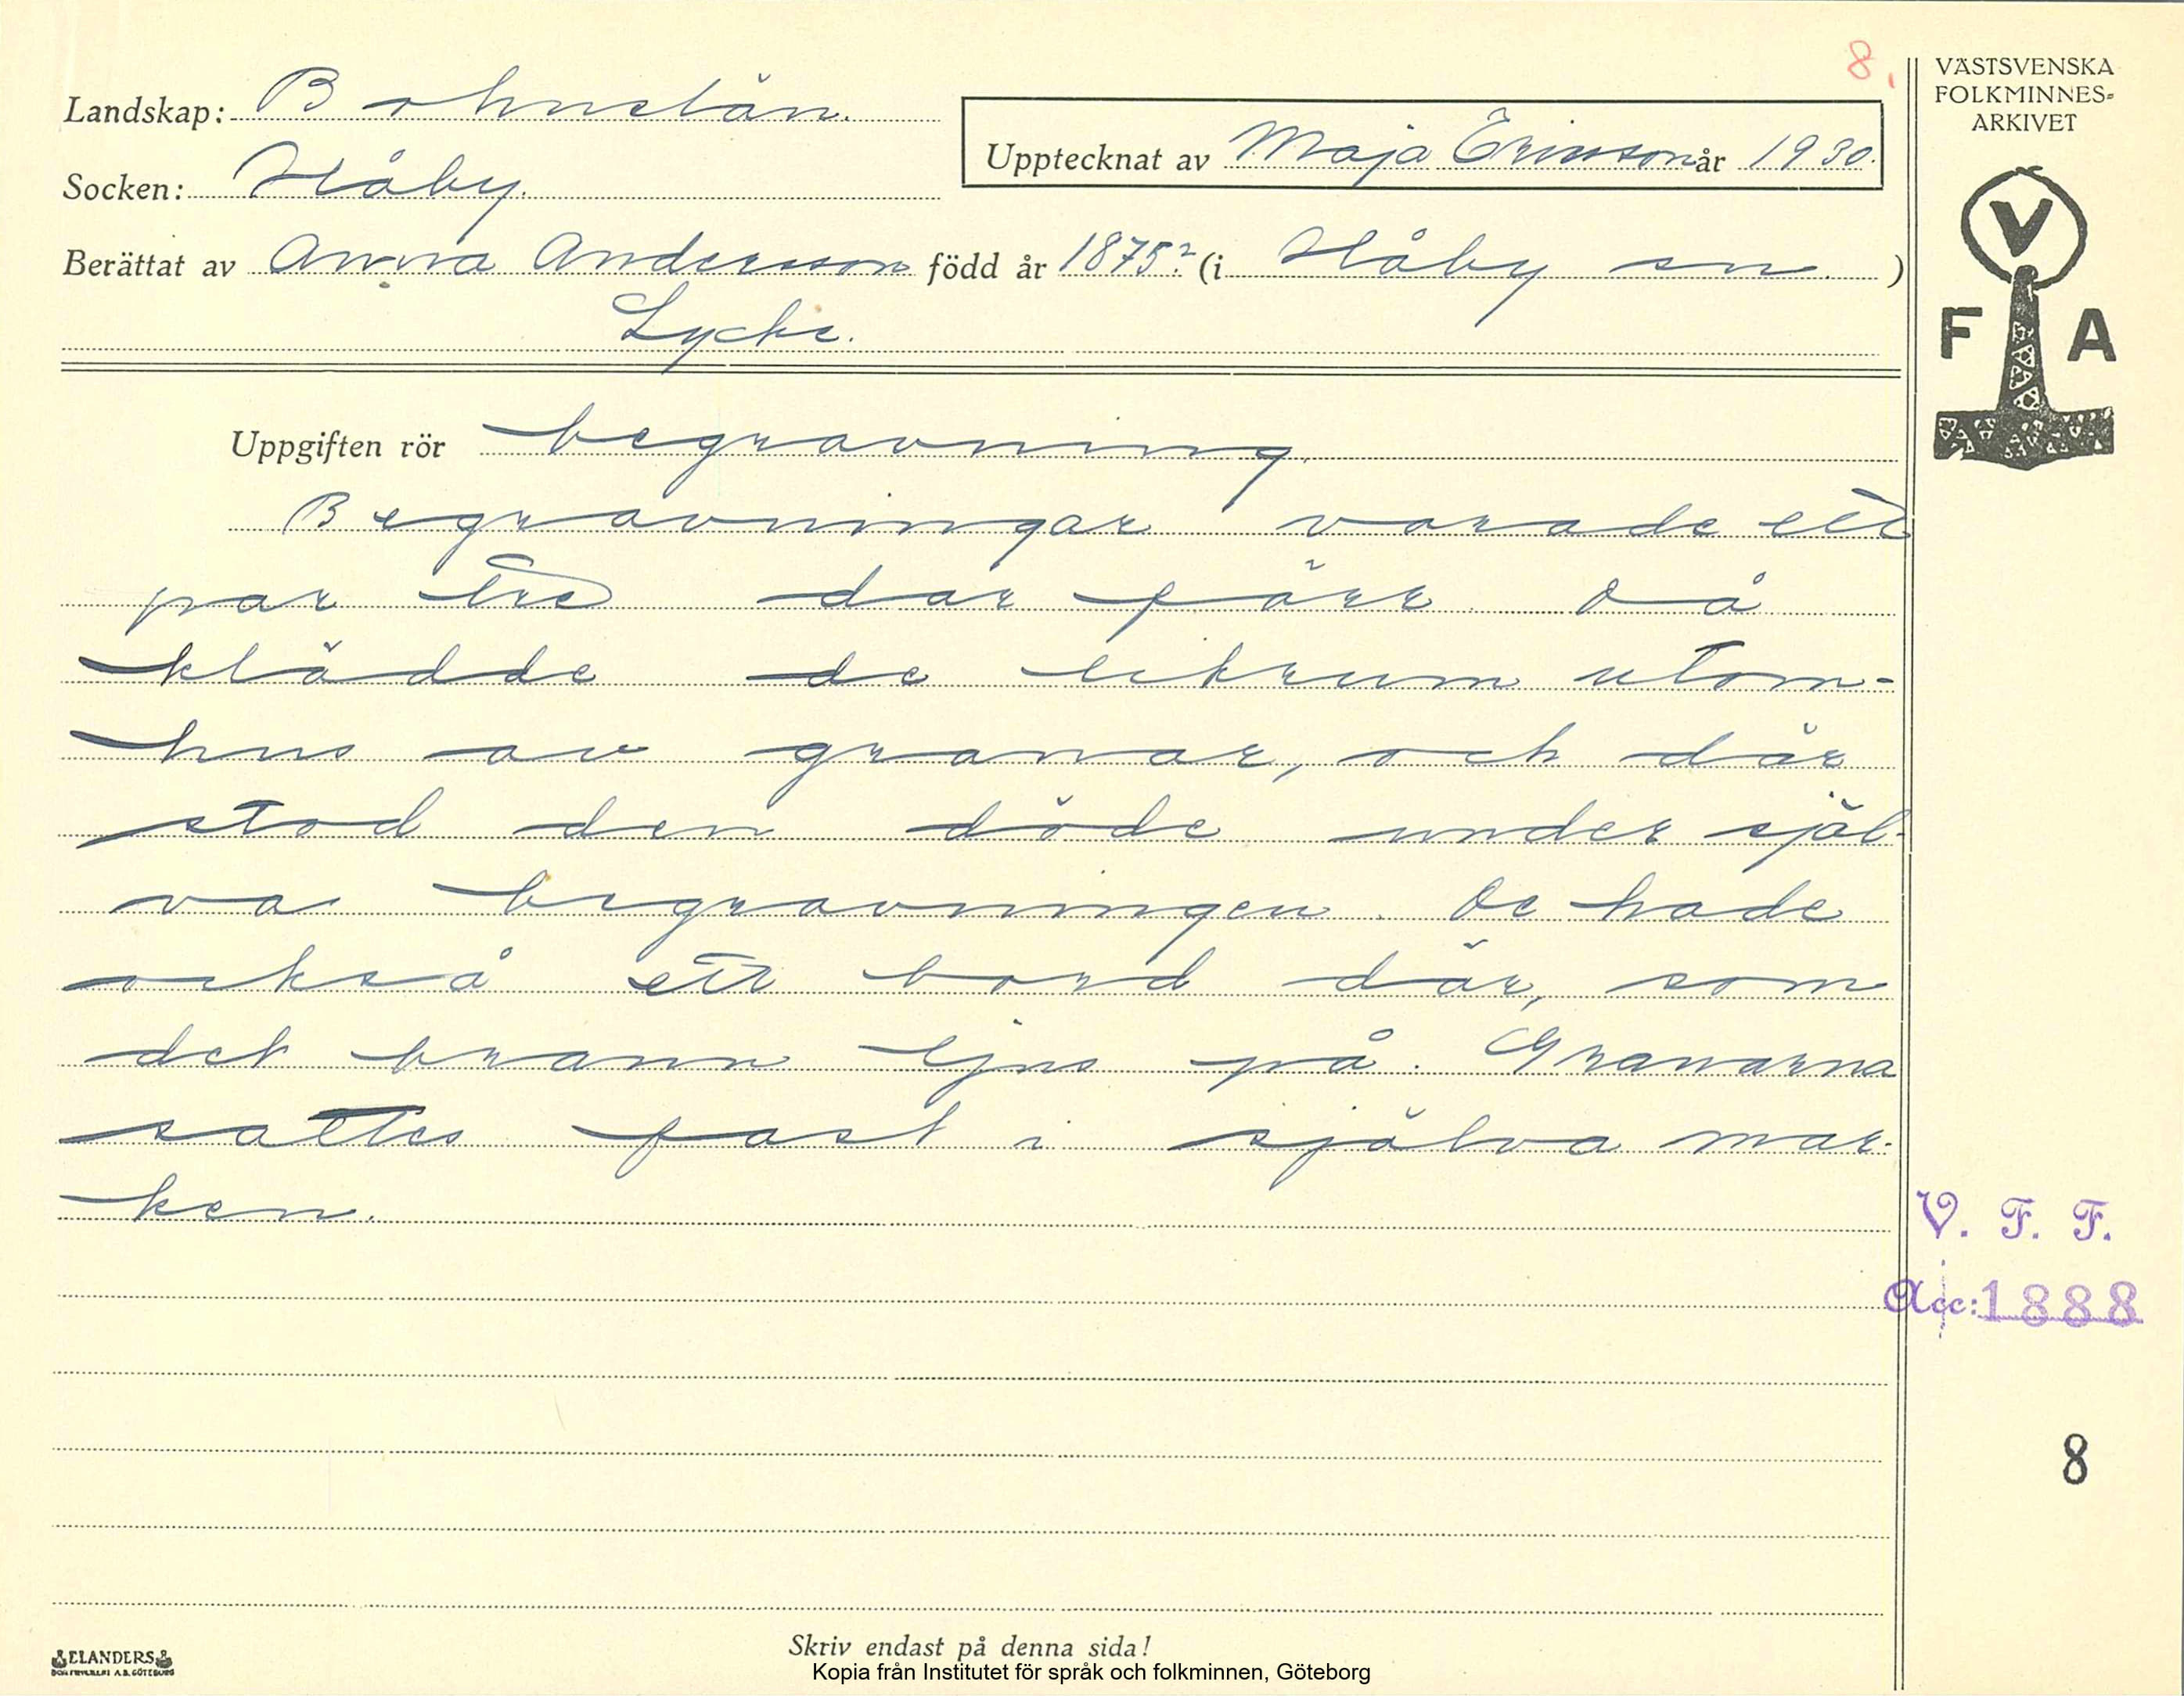 8.
VÄSTSVENSKA
FOLKMINNES=
ARKIVET
Landskap: Bohuslän.
Upptecknat av Maja Ericsson år 1930.
Socken: Håby.
Berättat av Anna Andersson född år 1875? (i Håby sn.)
Lycke.
V
F A
Uppgiften rör begravning.
Begravningar varade ett
par tre dar förr. Då
klädde de likrum utom-
hus av granar, och där
stod den döde under själ-
va begravningen. De hade
också ett bord där, som
det brann ljus på. Granarna
sattes fast i själva mar-
ken.
V. F. F.
Acc: 1888
8
ELANDERS
Skriv endast på denna sida!
Kopia från Institutet för språk och folkminnen, Göteborg